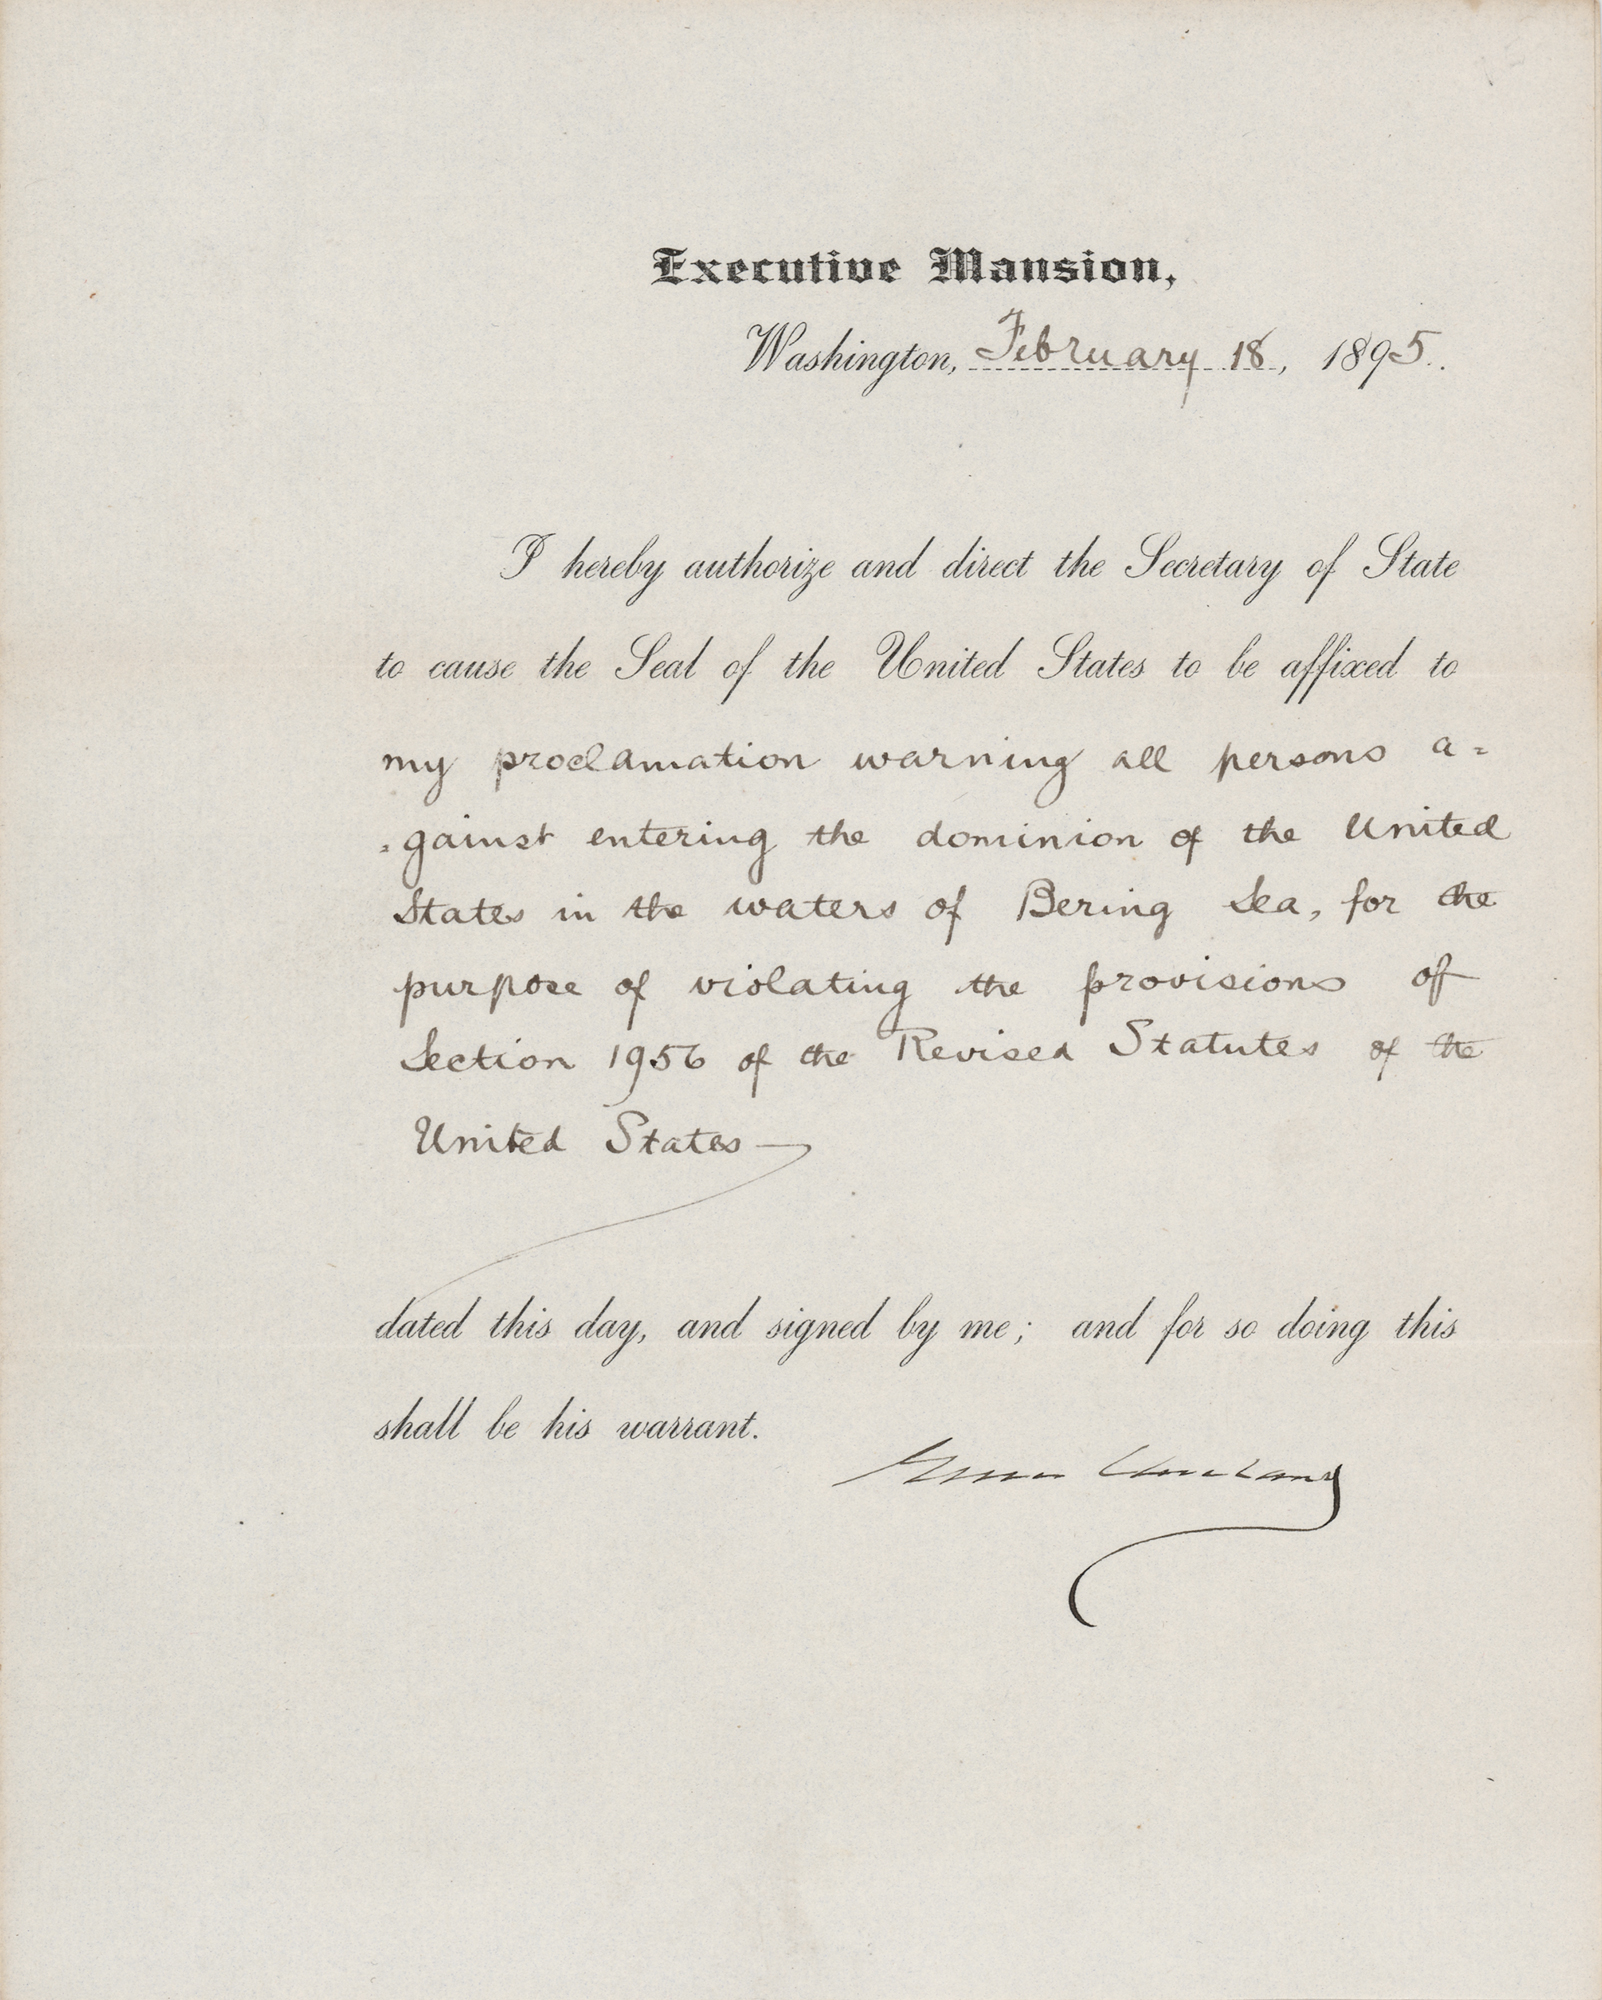 Executive Mansion,
Washington, February 18, 1895.
I hereby authorize and direct the Secretary of State
to cause the Seal of the United States to be affixed to
my proclamation warning all persons a=
=gainst entering the dominion of the United
States in the waters of Bering Sea, for the
purpose of violating the provisions of
Section 1956 of the Revised Statutes of the
United States —
dated this day, and signed by me; and for so doing this
shall be his warrant.
Grover Cleveland